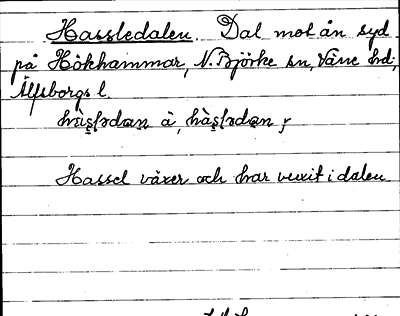 Hassledalen. Dal mot ån syd
på Hökhammar, N. Björke sn, Väne hd,
Älfsborgs l.
Hassel växer och har vuxit i dalen